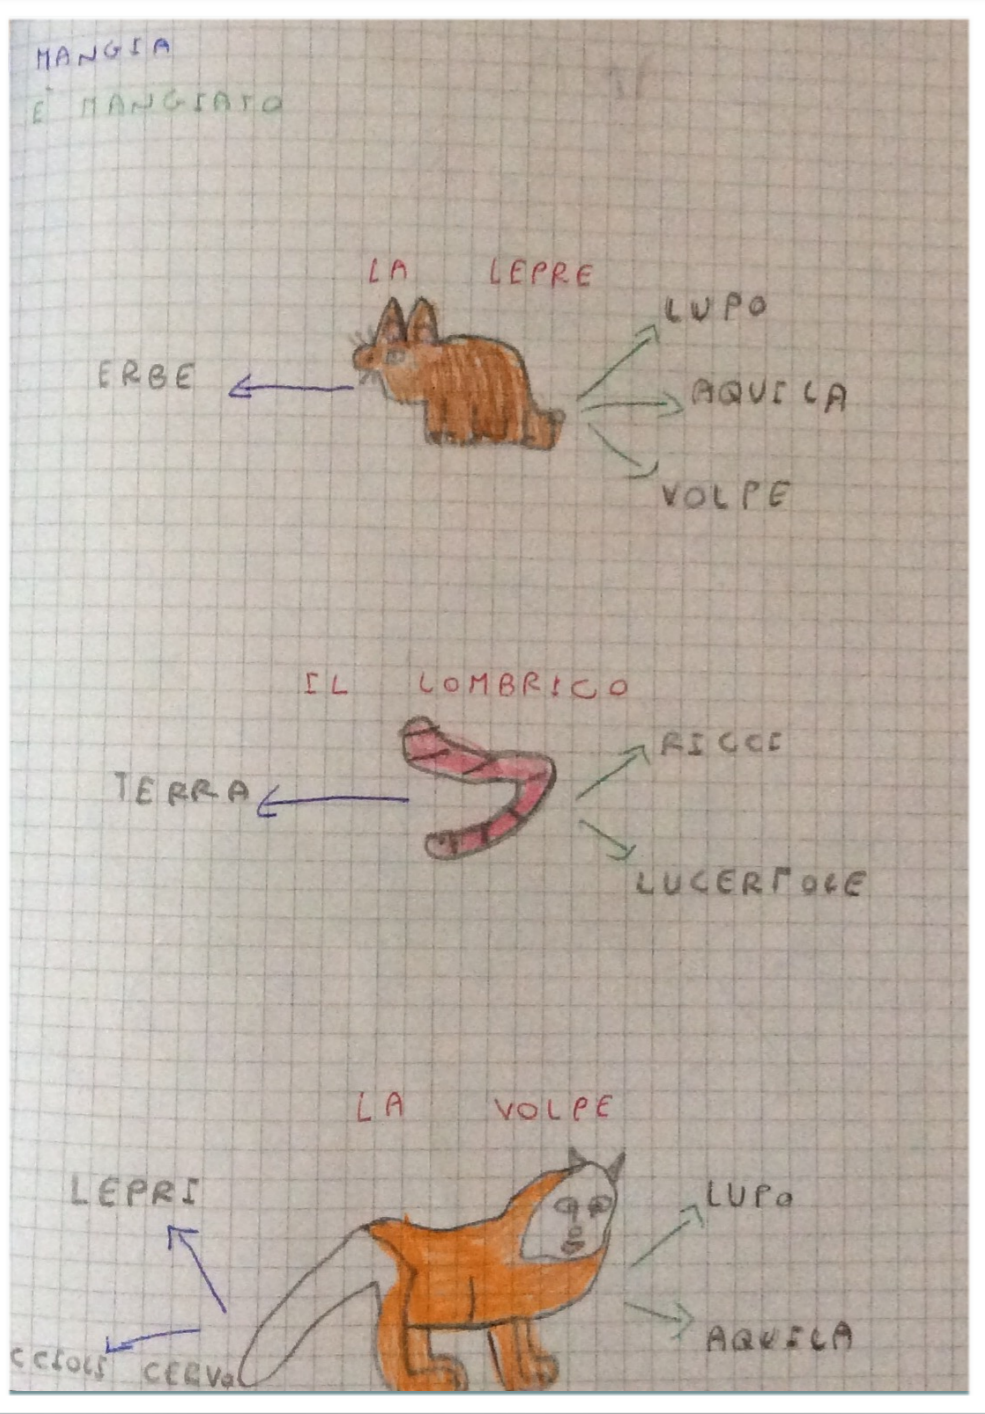 MANGIA
È MANGIATO
LA LEPRE
LUPO
ERBE
AQUILA
VOLPE
IL LOMBRICO
RICCI
TERRA
LUCERTOLE
LA VOLPE
LEPRI
LUPO
AQUILA
CERVO